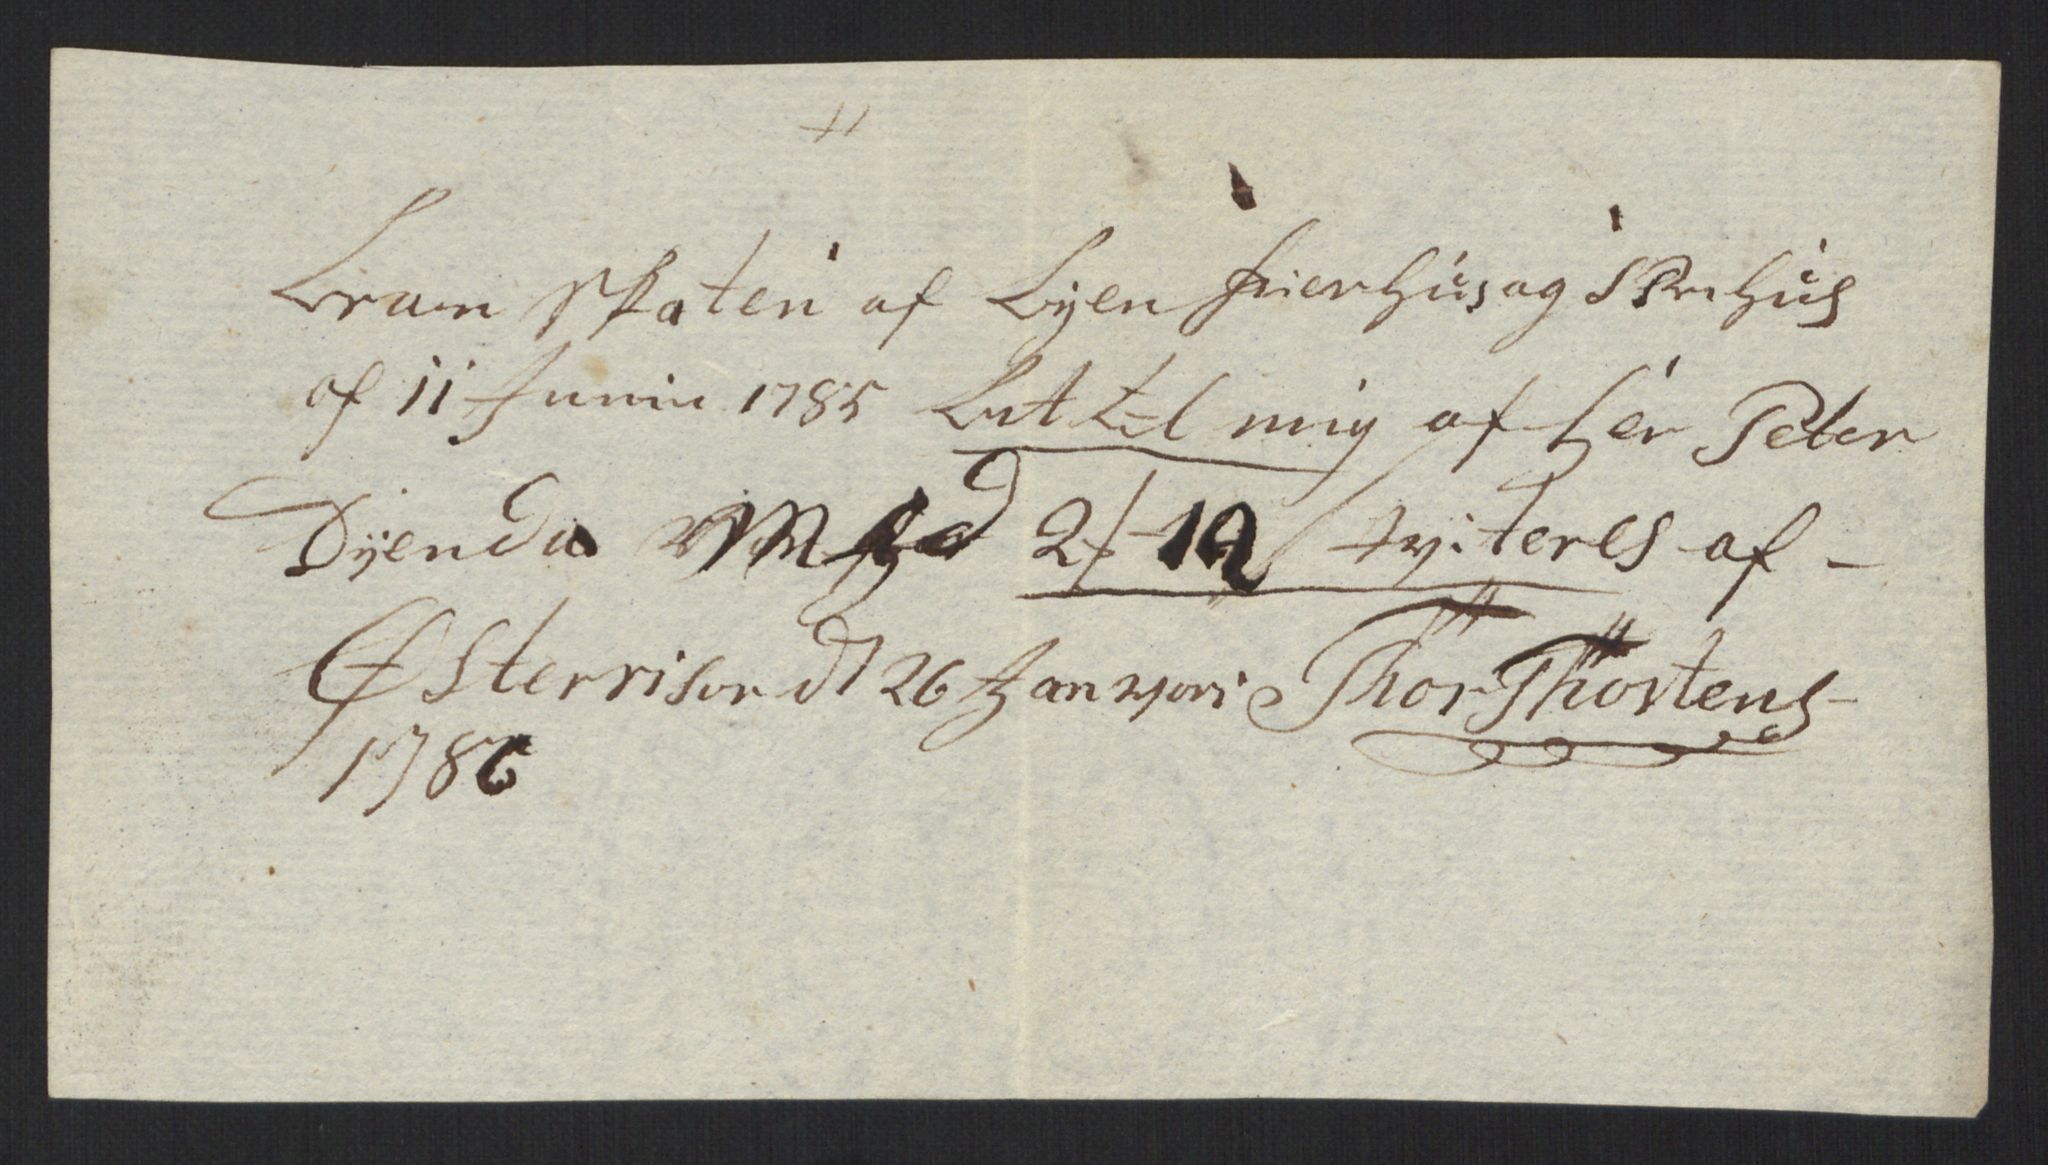 Bran skaten af Byen frierhus og Skrehus
af 11 Junii 1785 Bettel mig af her Peter
Dyendal Med 2/ 12 kviteres af -
Østerrisør d 26 Janvari Thor Thortens
1786